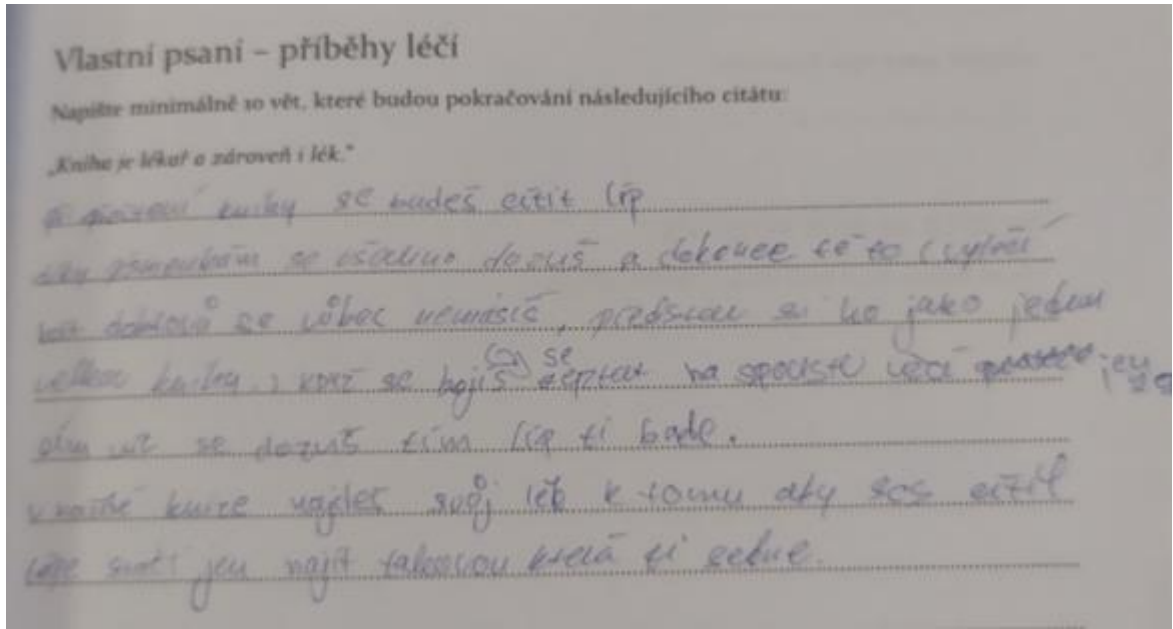 Vlastní psaní – příběhy léčí
Napište minimálně 10 vět, které budou pokračování následujícího citátu:
„Kniha je lékař a zároveň i lék.“
knihy se budeš cítit líp
se dozvíš a dokonce tě to
se vůbec nemusíš, představ si ho jako jednu
velkou knihu, se bojíš se zeptat na spoustu věcí
se dozvíš tím líp ti bude.
v každé knize najdeš svůj lék k tomu aby ses cítil
lépe stačí jen najít takovou která ti sedne.